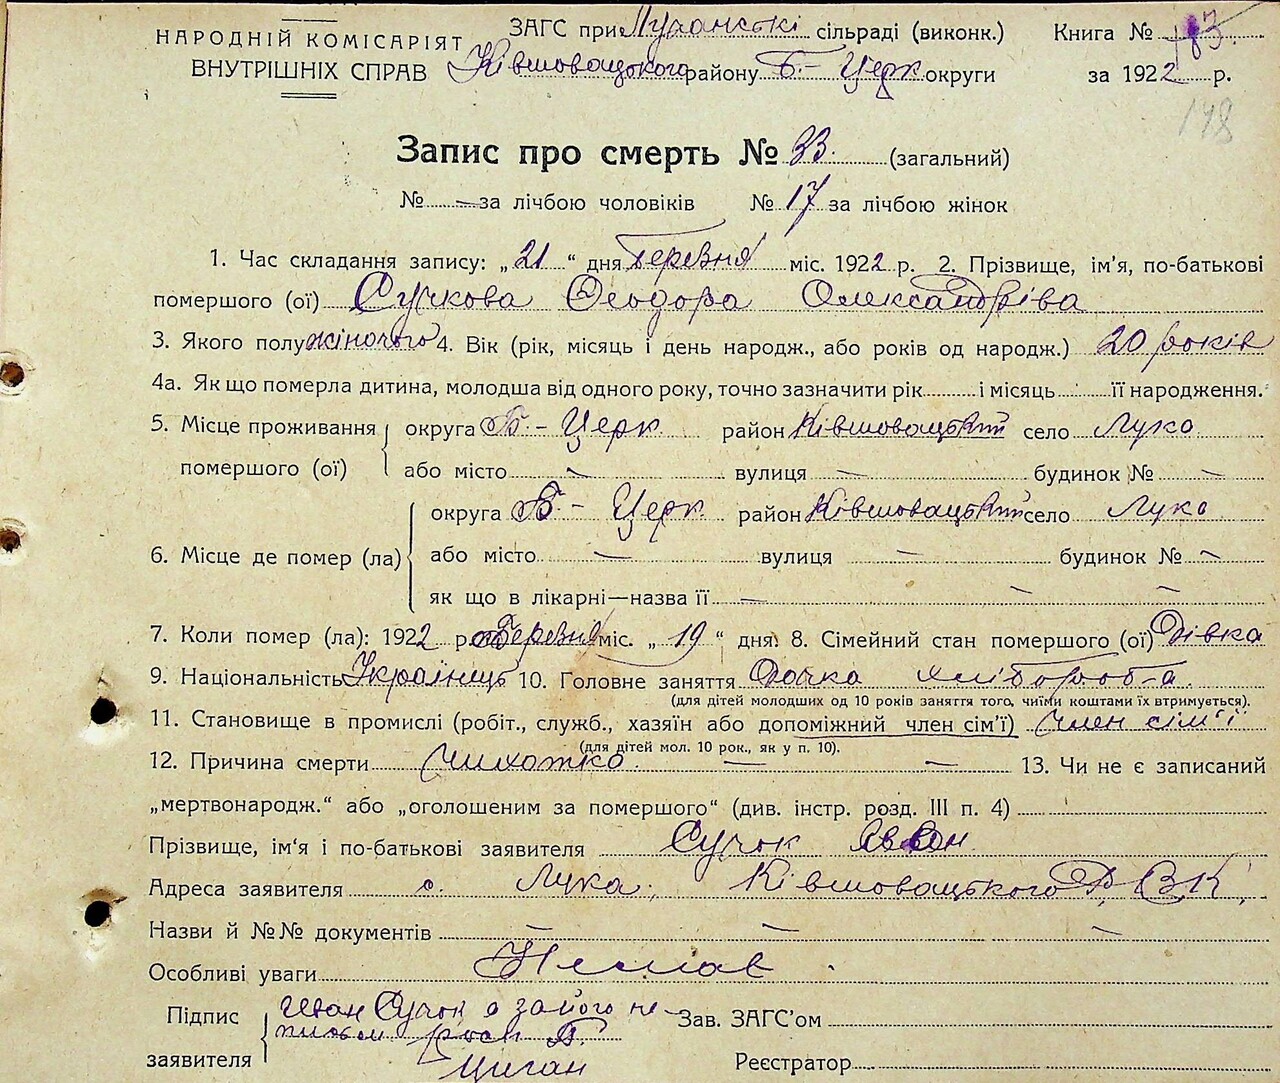 НАРОДНІЙ КОМІСАРІЯТ
ВНУТРІШНІХ СПРАВ
ЗАГС при Лучанські сільраді (виконк.) Книга № 183.
Ківшовацького району Б.-Церк округи за 1922 р.
148
Запис про смерть № 33. (загальний)
№ — за лічбою чоловіків № 17 за лічбою жінок
1. Час складання запису: „21“ дня Березня міс. 1922 р. 2. Прізвище, ім'я, по-батькові
помершого (ої) Сучкова Феодора Олександрівна
3. Якого полу жіночого 4. Вік (рік, місяць і день народж., або років од народж.) 20 років
4а. Як що померла дитина, молодша від одного року, точно зазначити рік і місяць її народження.
5. Місце проживання помершого (ої) округа Б.-Церк район Ківшовацький село Лука
або місто — вулиця — будинок № —
6. Місце де помер (ла) округа Б.- Церк район Ківшовацький село Лука
або місто — вулиця — будинок № —
як що в лікарні—назва її — — —
7. Коли помер (ла): 1922 р. Березня міс. „19“ дня. 8. Сімейний стан помершого (ої) Дівка
9. Національність Українць 10. Головне заняття Дочка хлібороба
(для дітей молодших од 10 років заняття того, чиїми коштами їх втримується).
11. Становище в промислі (робіт., служб., хазяїн або допоміжний член сім'ї) член сім'ї
(для дітей мол. 10 рок., як у п. 10).
12. Причина смерти Сухотка. — — 13. Чи не є записаний
„мертвонародж.“ або „оголошеним за помершого“ (див. інстр. розд. III п. 4)
Прізвище, ім'я і по-батькові заявителя Сучок Іван
Адреса заявителя с. Лука, Ківшовацького Р.В.К.
Назви й №№ документів — — —
Особливі уваги Немає.
Підпис заявителя Іван Сучок а за його не-
письм росп
Циган
Зав. ЗАГС'ом
Реєстратор